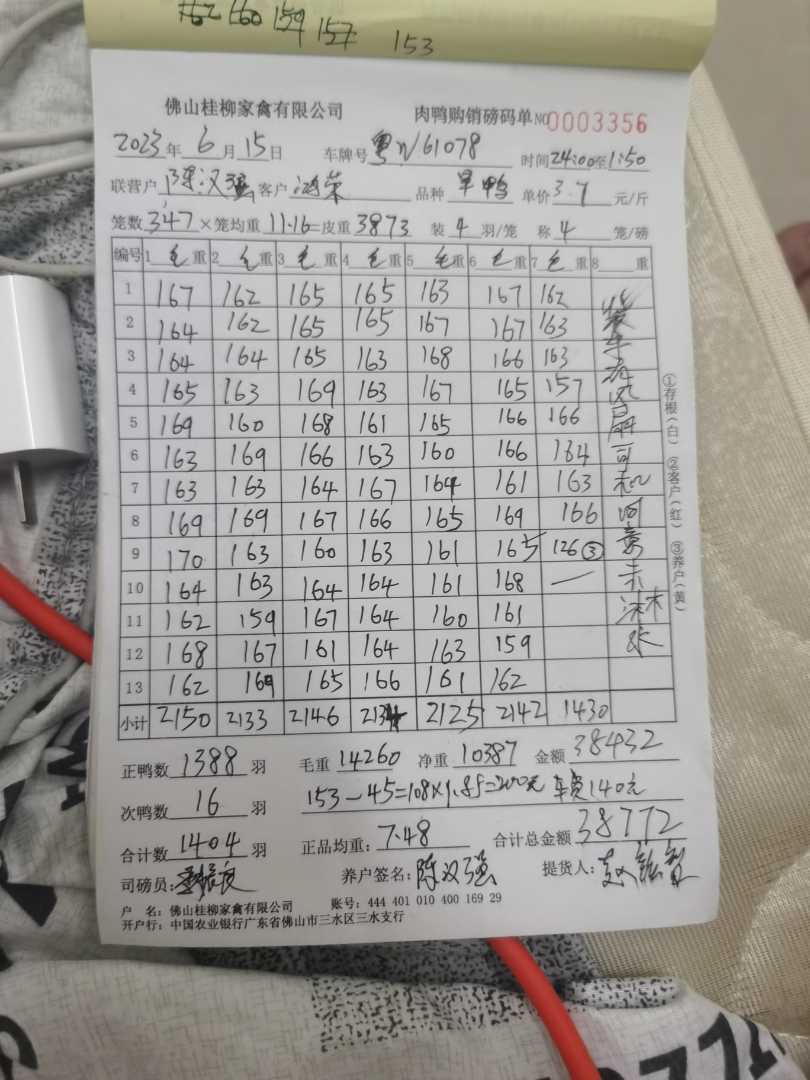 162 160 159 157 153
佛山桂柳家禽有限公司 肉鸭购销磅码单 NO 0003356
2023年 6月 15日 车牌号 粤N/61078 时间 24:00至1:50
联营户 陈汉强 客户 鸿荣 品种 旱鸭 单价 3.7 元/斤
笼数 347 ×笼均重 11.16=皮重 3873 装 4 羽/笼 称 4 笼/磅
编号 1 毛重 2 毛重 3 毛重 4 毛重 5 毛重 6 毛重 7 毛重 8 重
1 167 162 165 165 163 167 162
2 164 162 165 165 167 167 163
3 164 164 165 163 168 166 163
4 165 163 169 163 167 165 157
5 169 160 168 161 165 166 166
6 163 169 166 163 160 166 164
7 163 163 164 167 164 161 163
8 169 169 167 166 165 169 166
9 170 163 160 163 161 165 126 ③
10 164 163 164 164 161 168 —
11 162 159 167 164 160 161
12 168 167 161 164 163 159
13 162 169 165 166 161 162
小计 2150 2133 2146 2134 2125 2142 1430
①存根(白) ②客户(红) ③养户(黄)
正鸭数 1388 羽 毛重 14260 净重 10387 金额 38432
次鸭数 16 羽 153-45=108×1.85=200元 车费140元
合计数 1404 羽 正品均重: 7.48 合计总金额 38772
司磅员: 养户签名: 陈汉强 提货人:
户 名: 佛山桂柳家禽有限公司 账号: 444 401 010 400 169 29
开户行: 中国农业银行广东省佛山市三水区三水支行